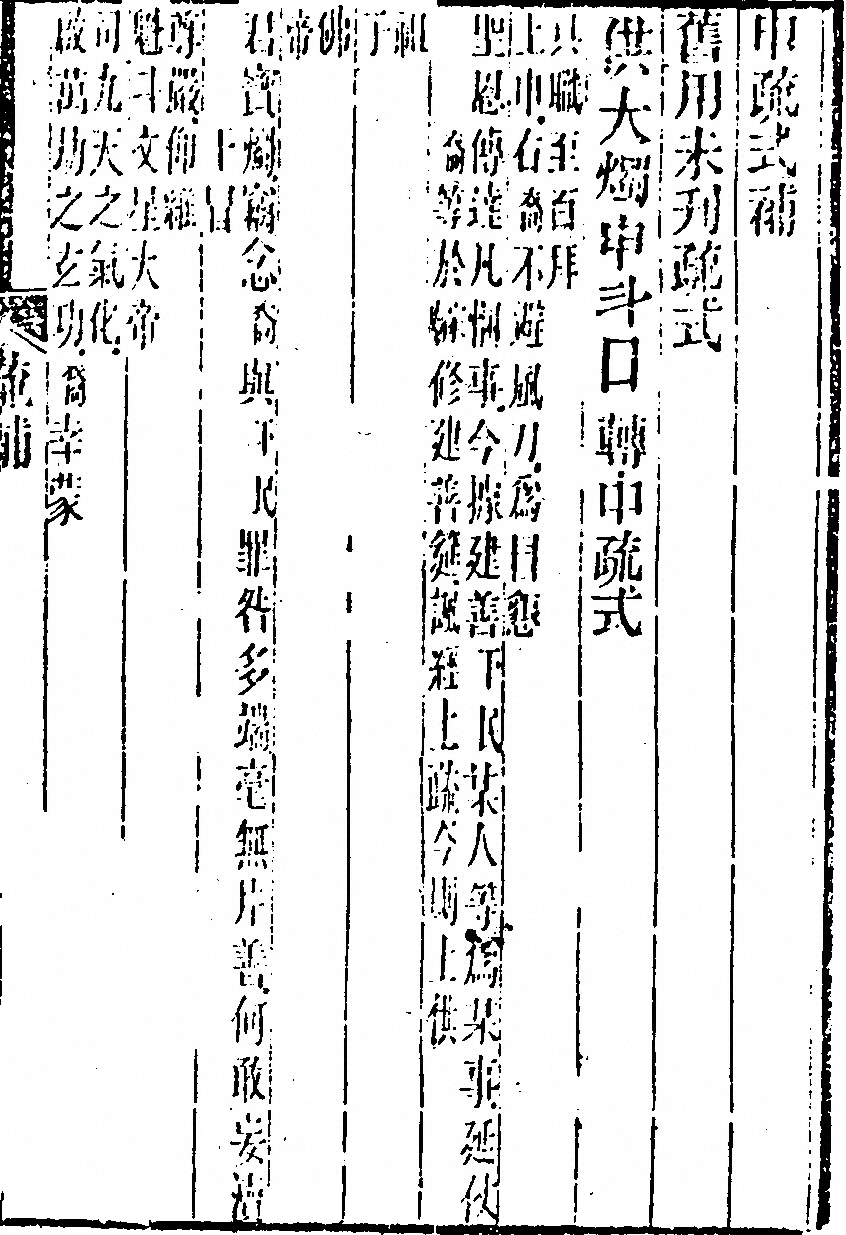 申疏式補
舊用未列疏式
供大燭申斗口轉申疏式
具職至百拜
上申右裔不避風刀為目懇
聖慈傳達凡悃事今據建善下民某人等為某事延仗
裔等於 修建善筵諷經上疏今則上供
祖
子
佛
帝
君寶燭竊念裔與下民罪咎多端毫無片善何敢妄瀆
十冒
尊嚴仰維
魁斗文星大帝
司九天之氣化
啟萬劫之玄功裔幸蒙
疏補